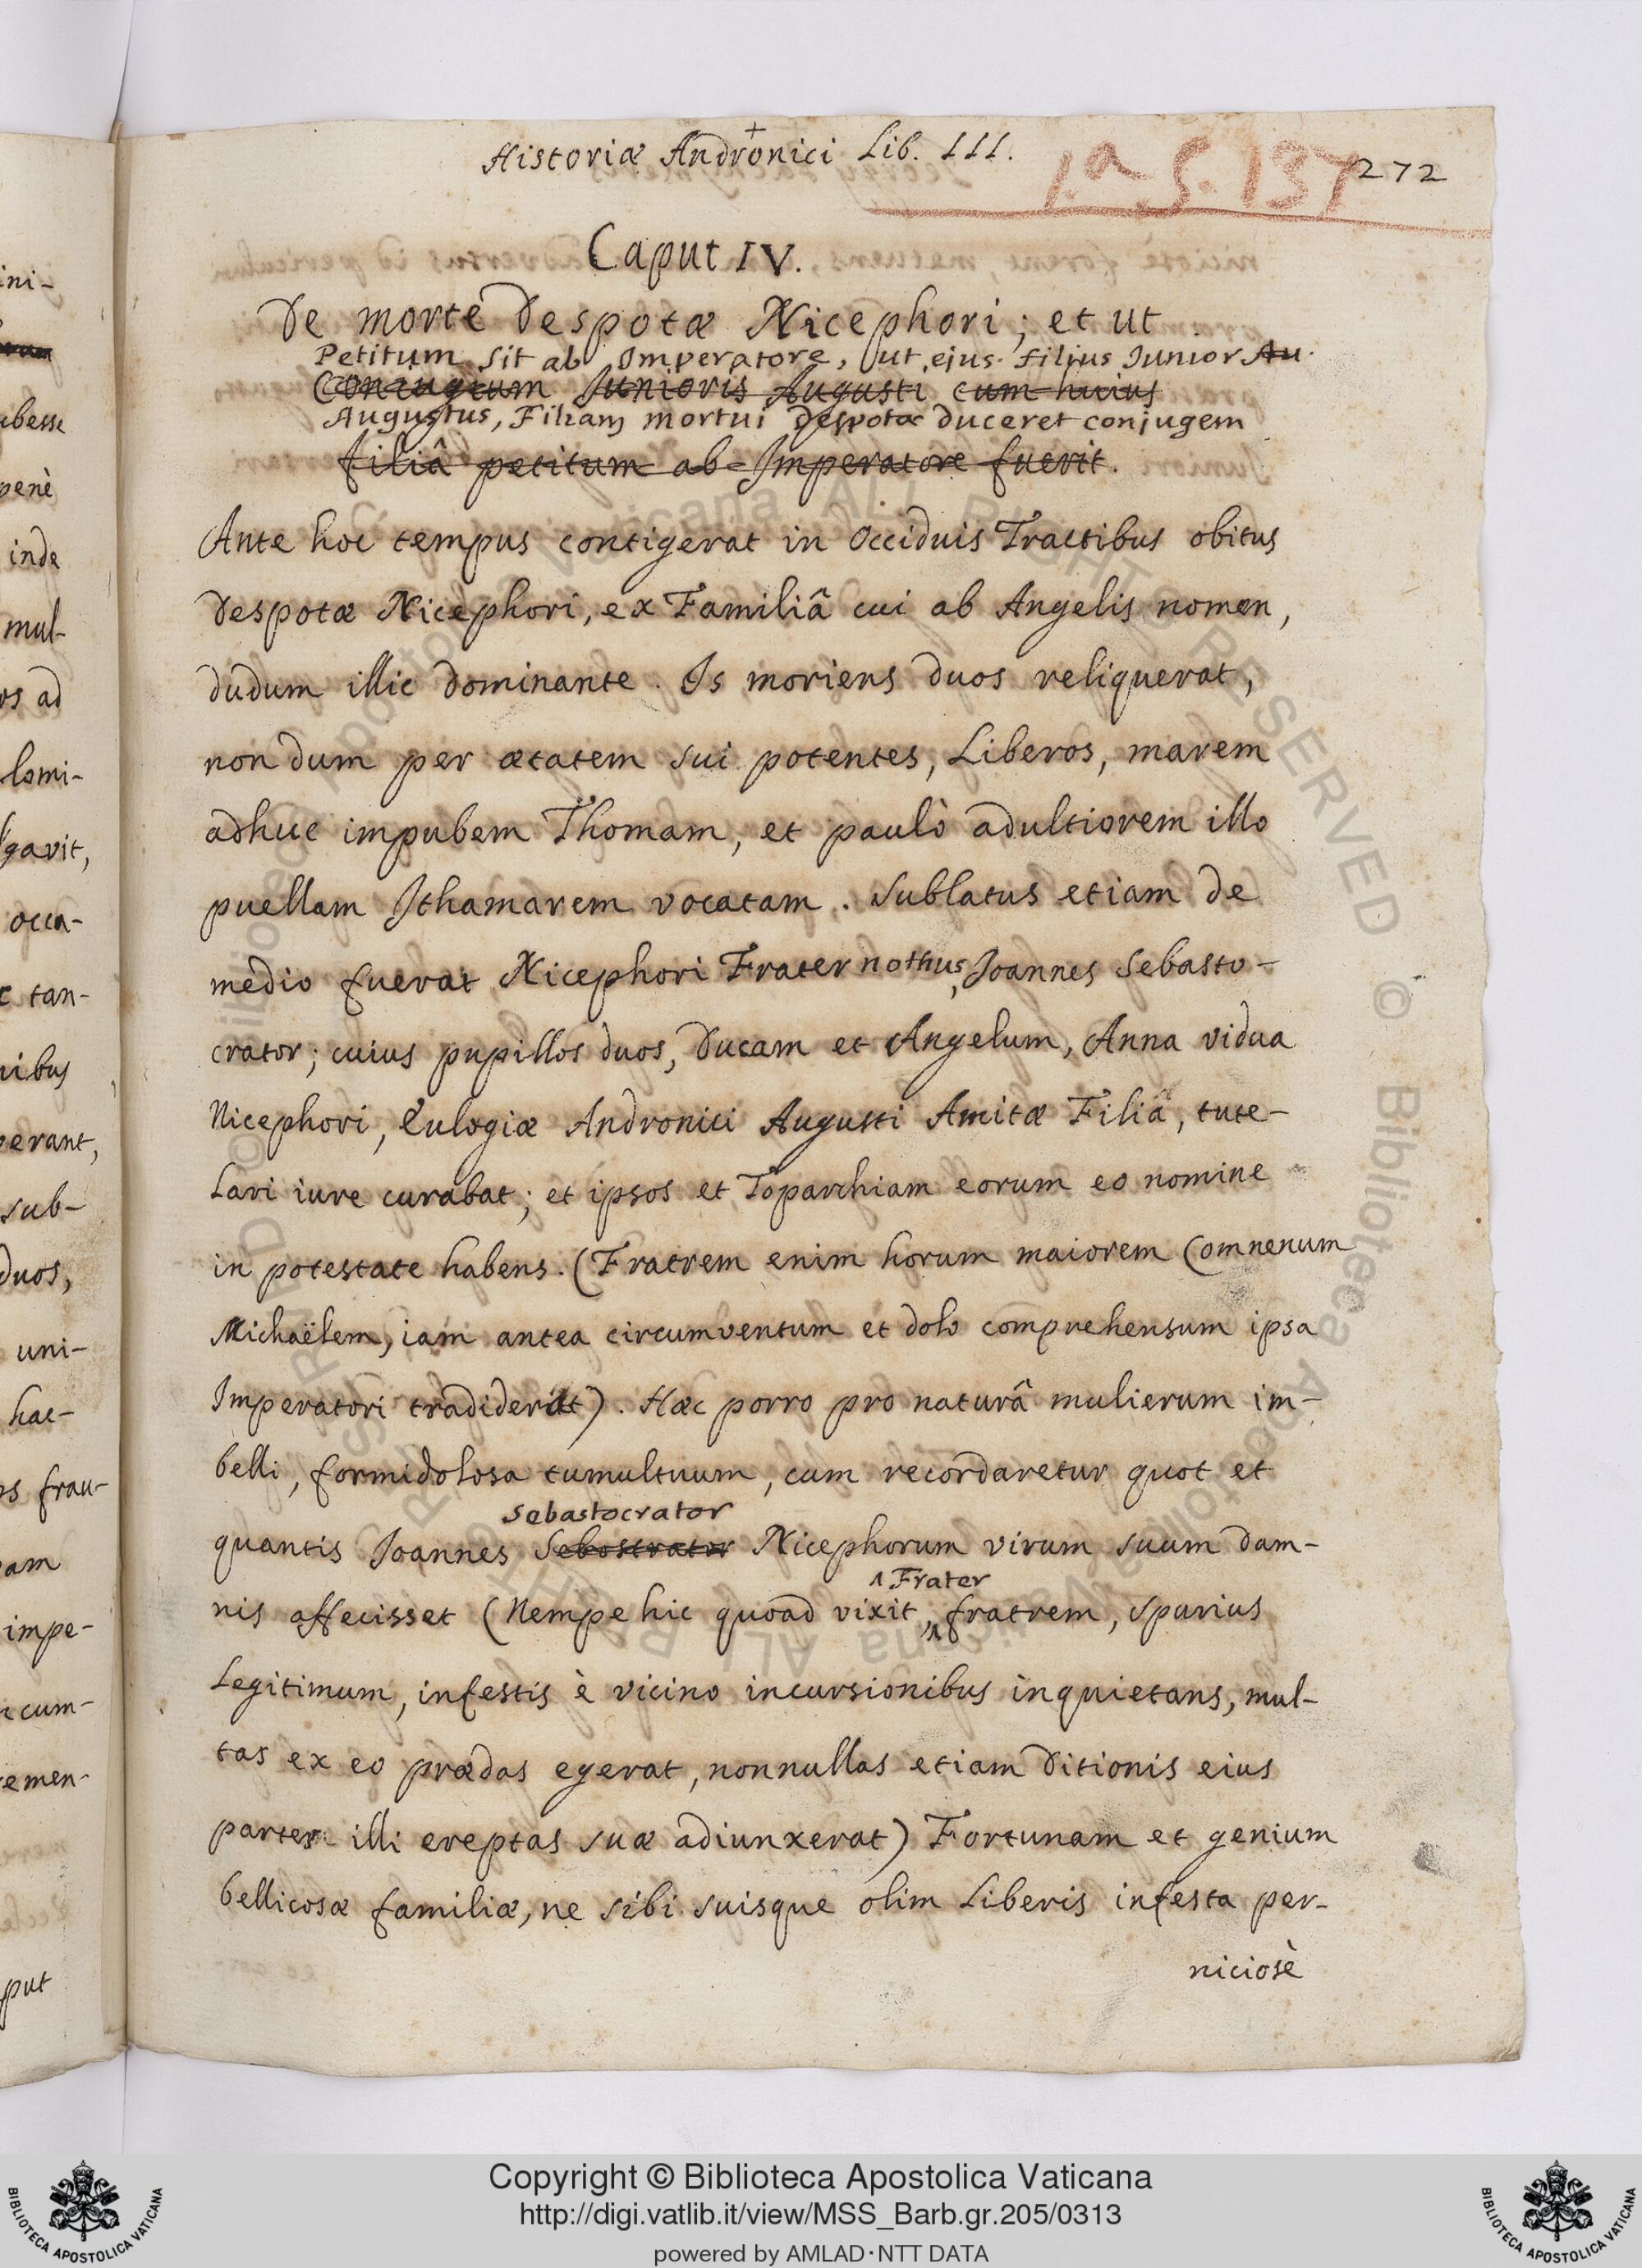 Historiæ Andronici Lib. III.
1.a S. 137
272
Caput IV.
De morte Despotæ Nicephori; et ut
Petitum sit ab Imperatore, ut ejus filius Junior Au.
Coniugium Junioris Augusti cum huius
Augustus, Filiam mortui Despotæ duceret conjugem
filiâ petitum ab Imperatore fuerit.
Ante hoc tempus contigerat in Occiduis Tractibus obitus
Despotæ Nicephori, ex Familiâ cui ab Angelis nomen,
dudum illic dominante. Is moriens duos reliquerat,
nondum per ætatem sui potentes, Liberos, marem
adhuc impubem Thomam, et paulò adultiorem illo
puellam Ithamarem vocatam. Sublatus etiam de
medio fuerat Nicephori Frater nothus, Joannes Sebasto-
crator; cuius pupillos duos, Ducam et Angelum, Anna vidua
Nicephori, Eulogiæ Andronici Augusti Amitæ Filia, tute-
lari iure curabat; et ipsos et Toparchiam eorum eo nomine
in potestate habens. (Fratrem enim horum maiorem Comnenum
Michaëlem, iam antea circumventum et dolo comprehensum ipsa
Imperatori tradiderat). Hæc porro pro naturâ mulierum im-
belli, formidolosa tumultuum, cum recordaretur quot et
Sebastocrator
quantis Joannes Sebostrator Nicephorum virum suum dam-
Frater
nis affecisset (Nempe hic quoad vixit, fratrem, spurius
Legitimum, infestis è vicino incursionibus inquietans, mul-
tas ex eo prædas egerat, nonnullas etiam Ditionis eius
partes illi ereptas suæ adiunxerat) Fortunam et genium
bellicosæ familiæ, ne sibi suisque olim Liberis infesta per-
niciosè
ini-
ubesse
penè
inde
mul-
os ad
lomi-
gavit,
occa-
c tan-
nibus
perant,
sub-
duos,
uni-
hac-
ns frau-
am
impe-
cum-
emen-
put
Copyright © Biblioteca Apostolica Vaticana
http://digi.vatlib.it/view/MSS_Barb.gr.205/0313
powered by AMLAD·NTT DATA
BIBLIOTECA APOSTOLICA VATICANA
BIBLIOTECA APOSTOLICA VATICANA